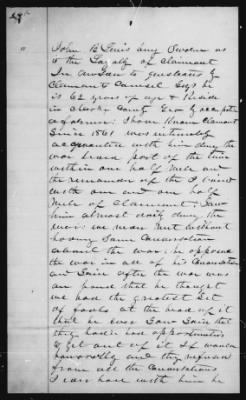 John B Tenis being Sworn as
to the Loyalty of Claimant
In Answer to questions by
Claimants Counsel Says he
is 62 years of age & Reside
in Clarke County Geo & occupation
a farmer. I have Known Claimant
Since 1861 was intimately
acquainted with him during the
war lived part of the time
within one half mile and
the remainder of the I lived
with one and one half
mile of Claimant & Saw
him almost daily during the
war. we never met without
having Some Conversation
about the war. he opposed
the war in all of his Conversation
and Said after the war was
on found that he thought
we had the greatest Set
of fools at the head of it
that he ever Saw Said that
they had had opportunities
of get out of it
favorably and they refused
from all the Conversations
I ever had with him he